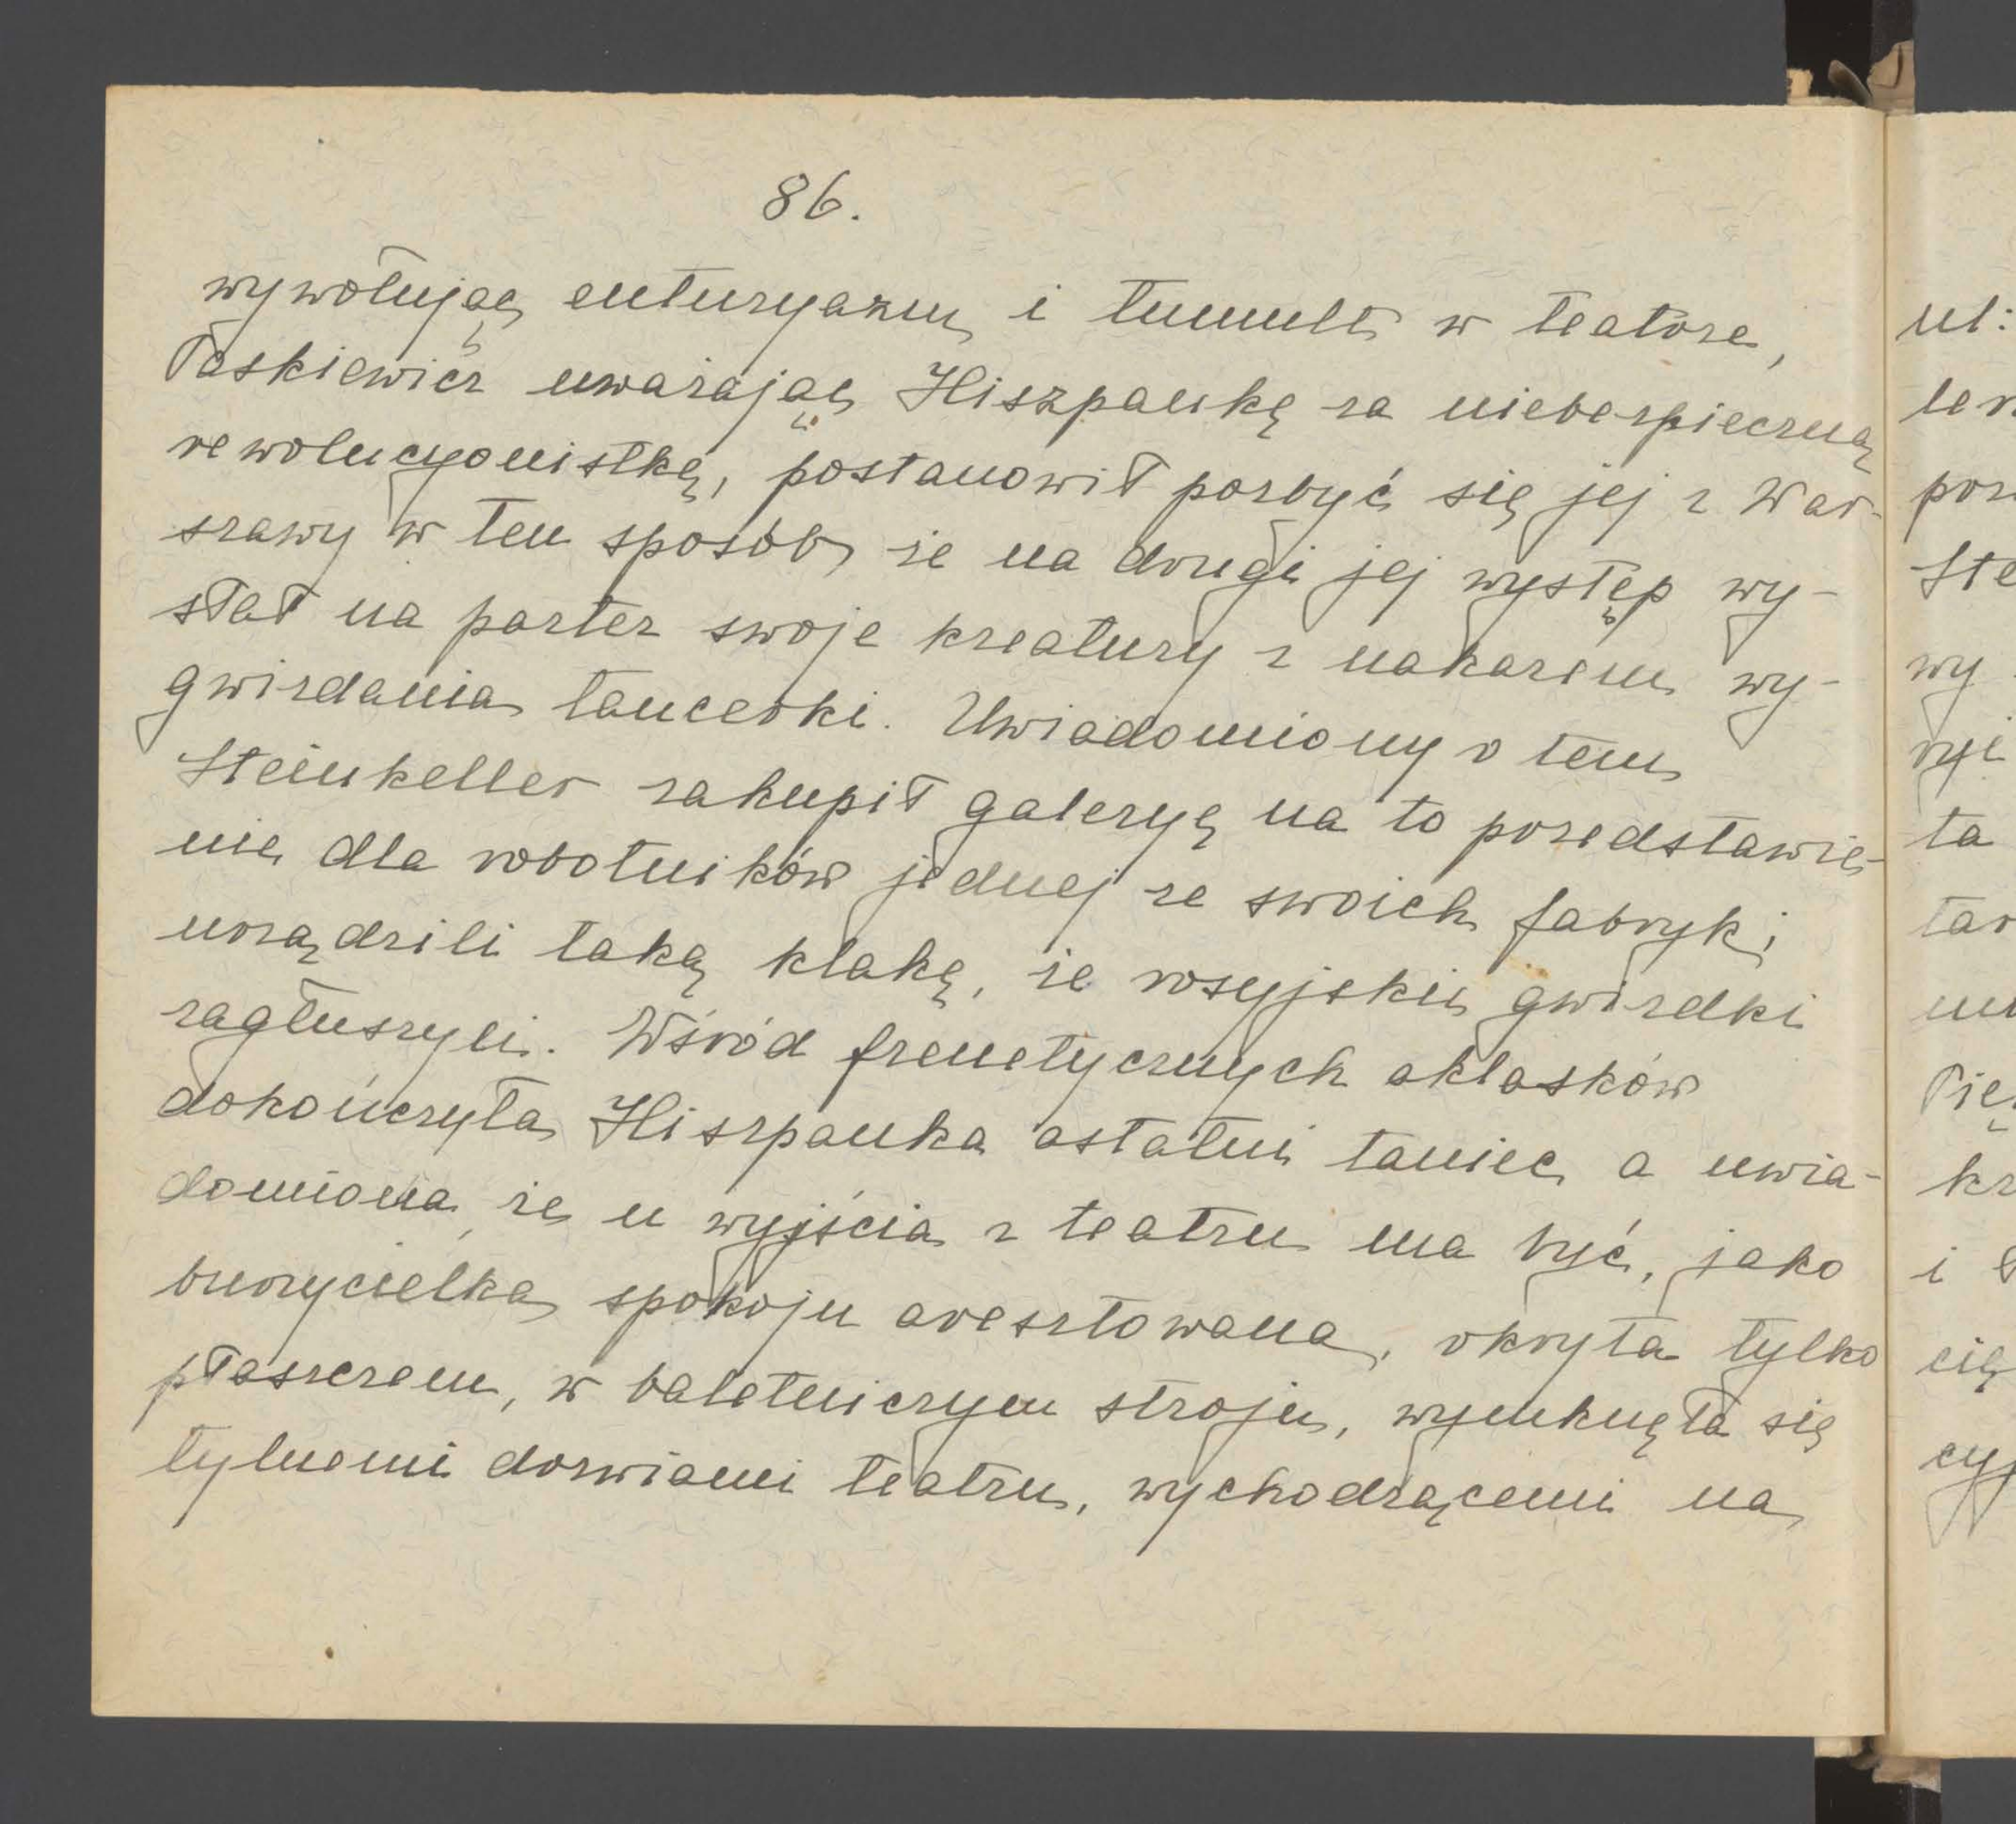 86.
wywołując entuzyazm i tumult w teatrze,
Paskiewicz uważając Hiszpankę za niebezpieczną
rewolucyonistkę, postanowił pozbyć się jej z War-
szawy w ten sposób, że na drugi jej występ wy-
słał na parter swoje kreatury z nakazem wy-
gwizdania tancerki. Uwiadomiony o tem
Steinkeller zakupił galeryę na to przedstawie-
nie dla robotników jednej ze swoich fabryk i
urządzili taką klakę, że rosyjskie gwizdki
zagłuszyli. Wśród frenetycznych oklasków
dokończyła Hiszpanka ostatni taniec a uwia-
domiona, że u wyjścia z teatru ma być, jako
burzycielka spokoju aresztowana, okryta tylko
płaszczem, w baletniczym stroju, wymknęła się
tylnemi drzwiami teatru, wychodzącemi na
ul:
ta
i